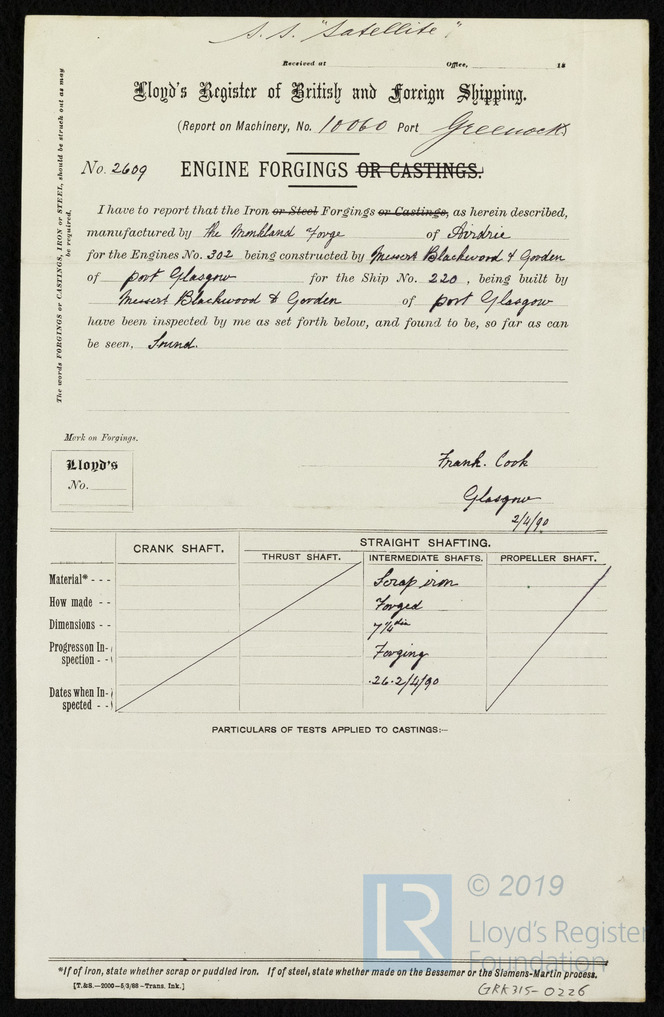 S.S. "Satellite"
Received at Office, 18
Lloyd's Register of British and Foreign Shipping.
(Report on Machinery, No. 10060 Port Greenock)
No. 2609 ENGINE FORGINGS OR CASTINGS.
The words FORGINGS or CASTINGS, IRON or STEEL, should be struck out as may be required.
I have to report that the Iron or Steel Forgings or Castings, as herein described,
manufactured by The Monkland Forge of Airdrie
for the Engines No. 302 being constructed by Messrs Blackwood & Gordon
of port Glasgow for the Ship No. 220, being built by
Messrs Blackwood & Gordon of port Glasgow
have been inspected by me as set forth below, and found to be, so far as can
be seen, Sound.
Mark on Forgings.
Lloyd's
No.
Frank. Cook
Glasgow
2/4/90
CRANK SHAFT. STRAIGHT SHAFTING.
THRUST SHAFT. INTERMEDIATE SHAFTS. PROPELLER SHAFT.
Material* - - - Scrap iron
How made - - Forged
Dimensions - - 7¼ dia
Progress on In- Forging
spection - -
Dates when In- 26.2/4/90
spected - -
PARTICULARS OF TESTS APPLIED TO CASTINGS:—
© 2019
LR
Lloyd's Register
Foundation
*If of iron, state whether scrap or puddled iron. If of steel, state whether made on the Bessemer or the Siemens-Martin process.
[T.&S.—2000—5/3/88—Trans. Ink.]
GRK315-0226